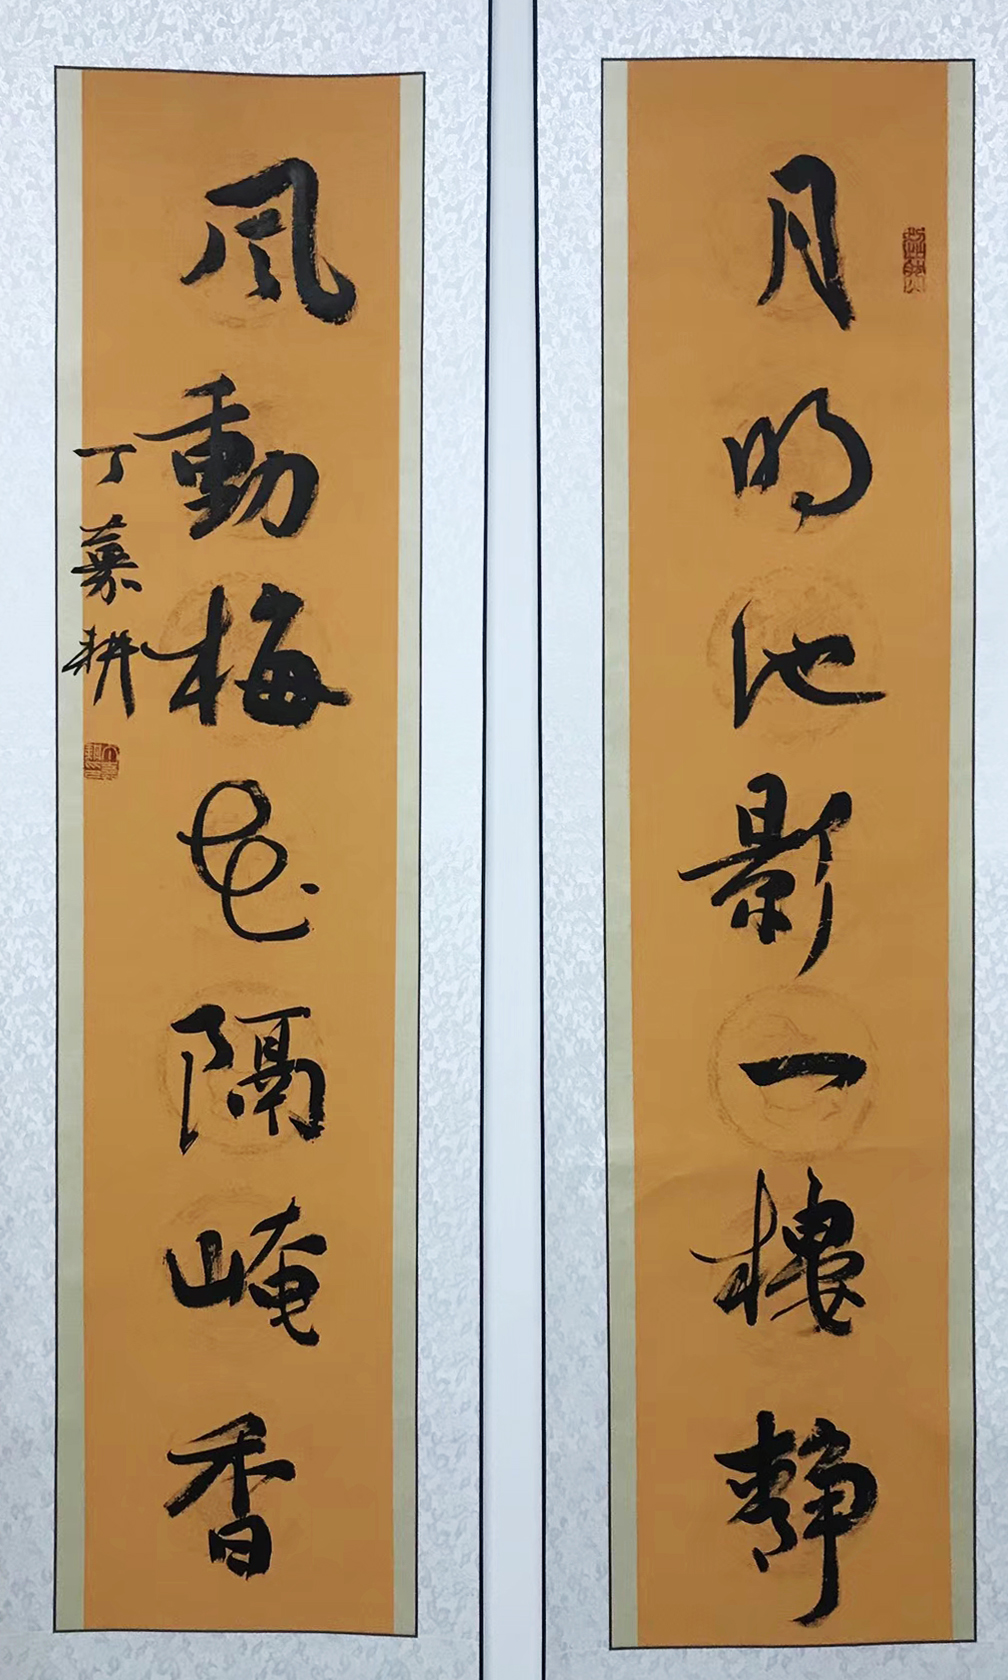 月明池影一楼静
風動梅花隔崦香
丁慕耕